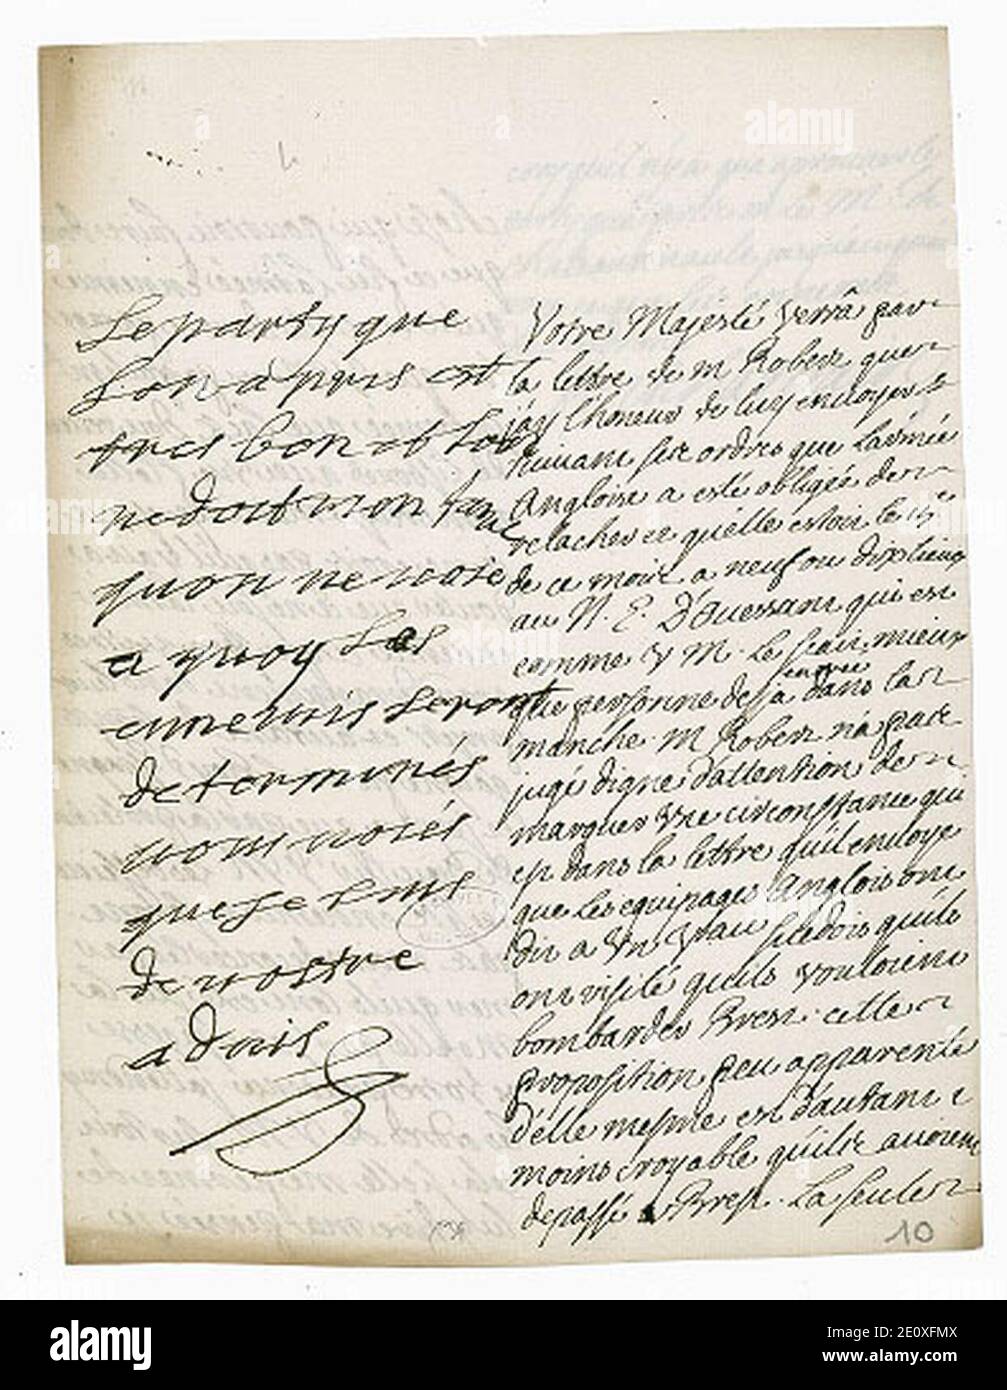 Le party que
Lon à pris est
tres bon et lon
ne doit mon
quon ne voie
a quoy Les
ennemis seront
determinés
vom voiés
que Je suis
de vostre
advis
Votre Majesté verrâ par
la lettre de M Robert que
j'ay l'honeur de luy envoyer
suivant ses ordres que l'armée
Angloise a esté obligée de
relacher et qu'elle estoit le 15e
de ce mois a neuf ou dix lieües
au N. E. D'Ouessant qui est
comme V M. le sçait mieux
que personne desja entrée dans la
manche. M Robert n'a pas
jugé digne d'attention de
marquer une circonstance qui
est dans la lettre qu'il envoye
que les equipages Anglois ont
dit a un Vau Suedois qu'ils
ont visité qu'ils vouloient
bombarder Brest. cette
proposition peu apparente
d'elle mesme est d'autant
moins croyable qu'ils auroient
depassé Brest. La seule
10
alamy
Image ID: 2E0XFMX
www.alamy.com